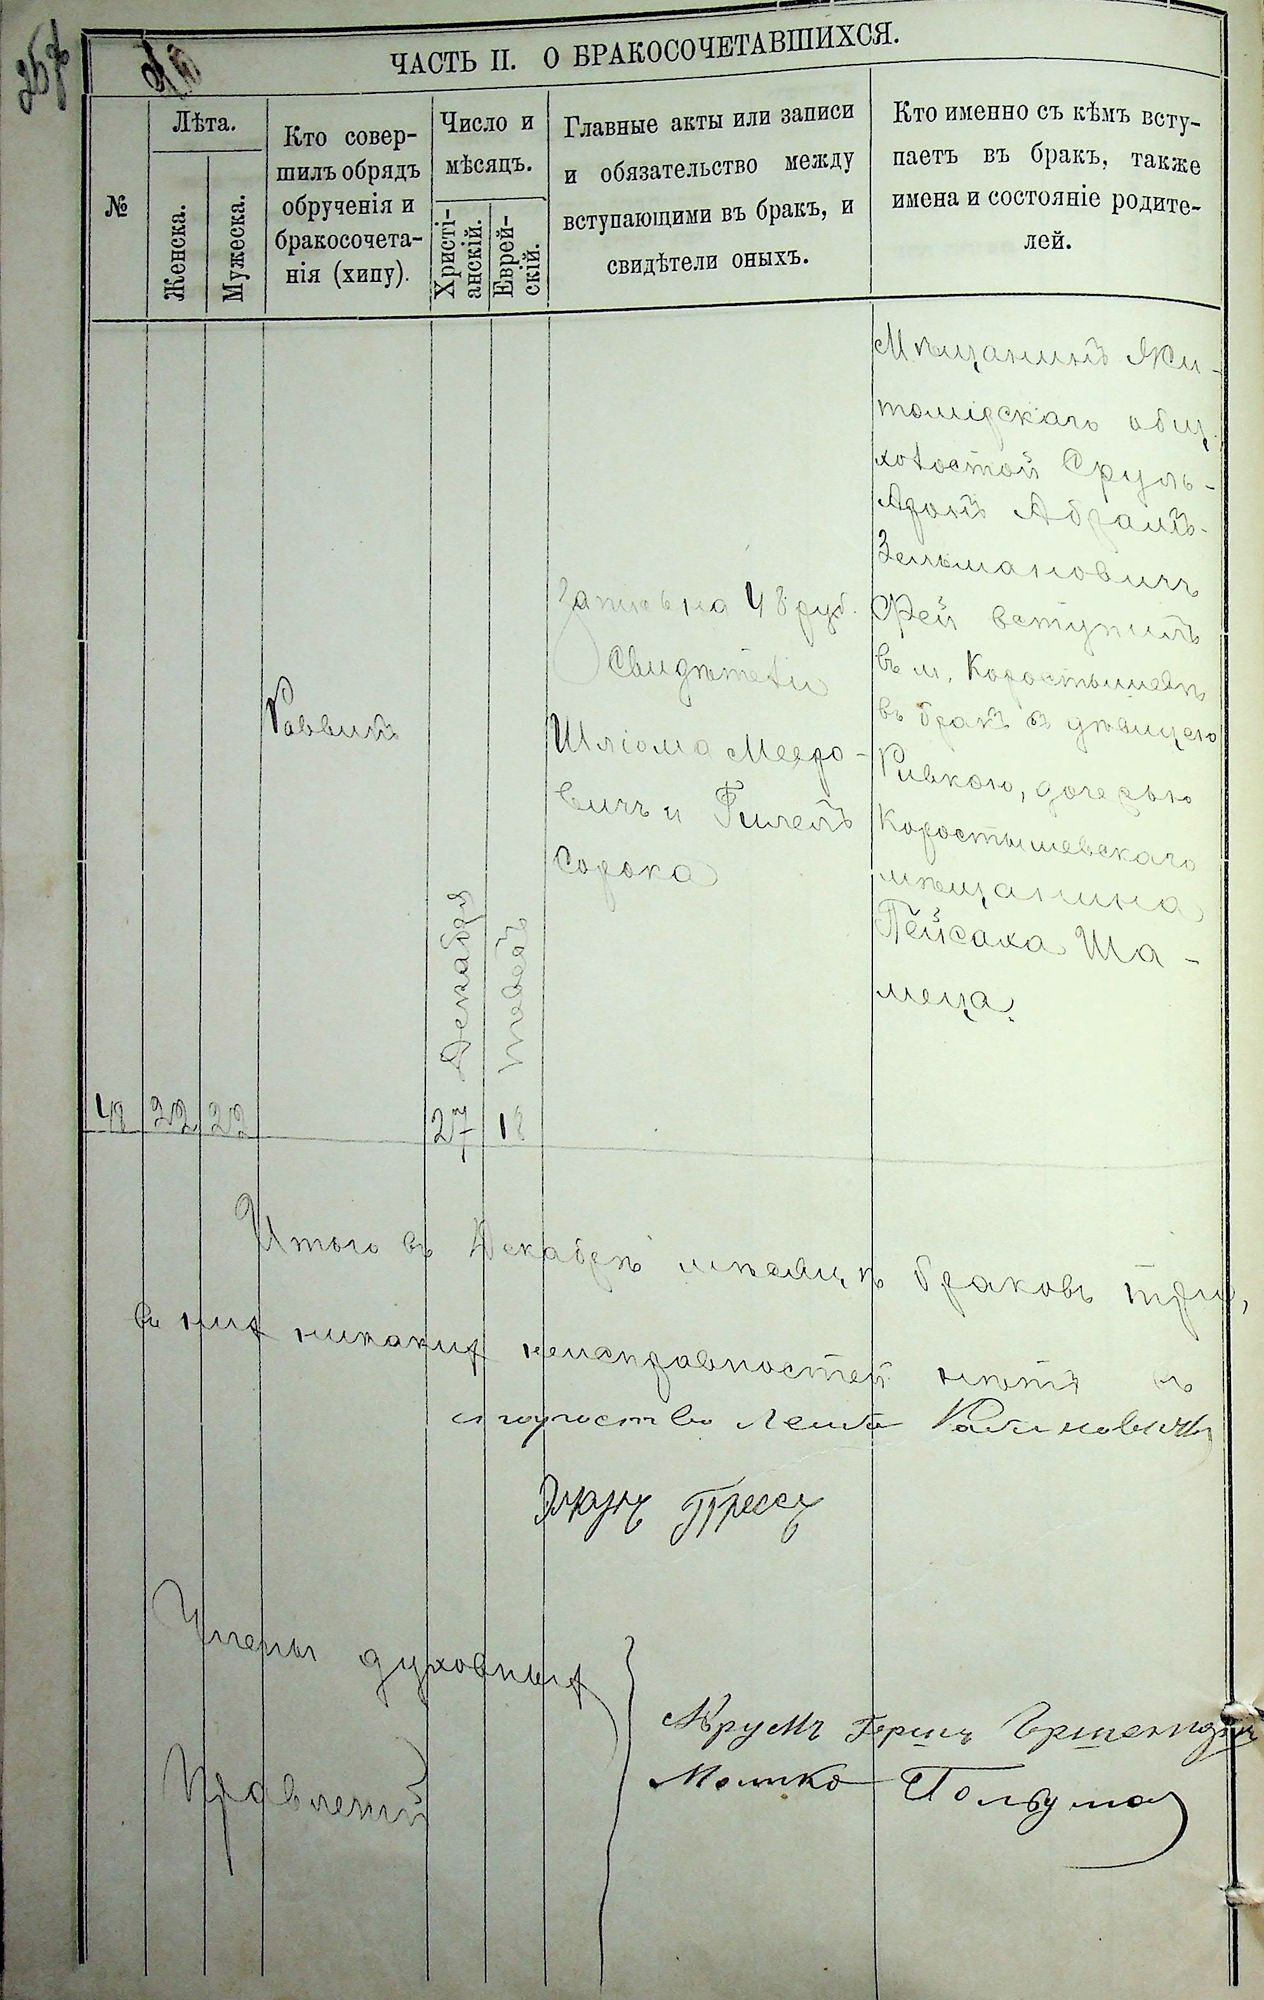 ЧАСТЬ II. О БРАКОСОЧЕТАВШИХСЯ.
№
Лѣта.
Женска.
Мужеска.
Кто совер-
шилъ обрядъ
обрученія и
бракосочета-
нія (хипу).
Число и
мѣсяцъ.
Христі-
анскій.
Еврей-
скій.
Главные акты или записи
и обязательство между
вступающими въ бракъ, и
свидѣтели оныхъ.
Кто именно съ кѣмъ всту-
паетъ въ бракъ, также
имена и состояніе родите-
лей.
42
22
22
Раввинъ
Декабря
27
Тевейтъ
18
Запись на 48 руб.
Свидѣтели
Шліома Мееро-
вичъ и Гилель
Сорока
Мѣщанинъ Жи-
томірскаго общ.
холостой Сруль-
Аронъ Абрамъ-
Зельмановичъ
Фей вступилъ
въ м. Коростышевѣ
въ бракъ съ дѣвицею
Ривкою, дочерью
Коростышевскаго
мѣщанина
Пейсаха Ша-
меца.
Итого въ Декабрѣ мѣсяцѣ браковъ три,
въ них никаких неисправностей нѣтъ въ
Лейба Рабиновичъ
Прессъ
Члены духовных
Правленій
Гершъ
Мошко